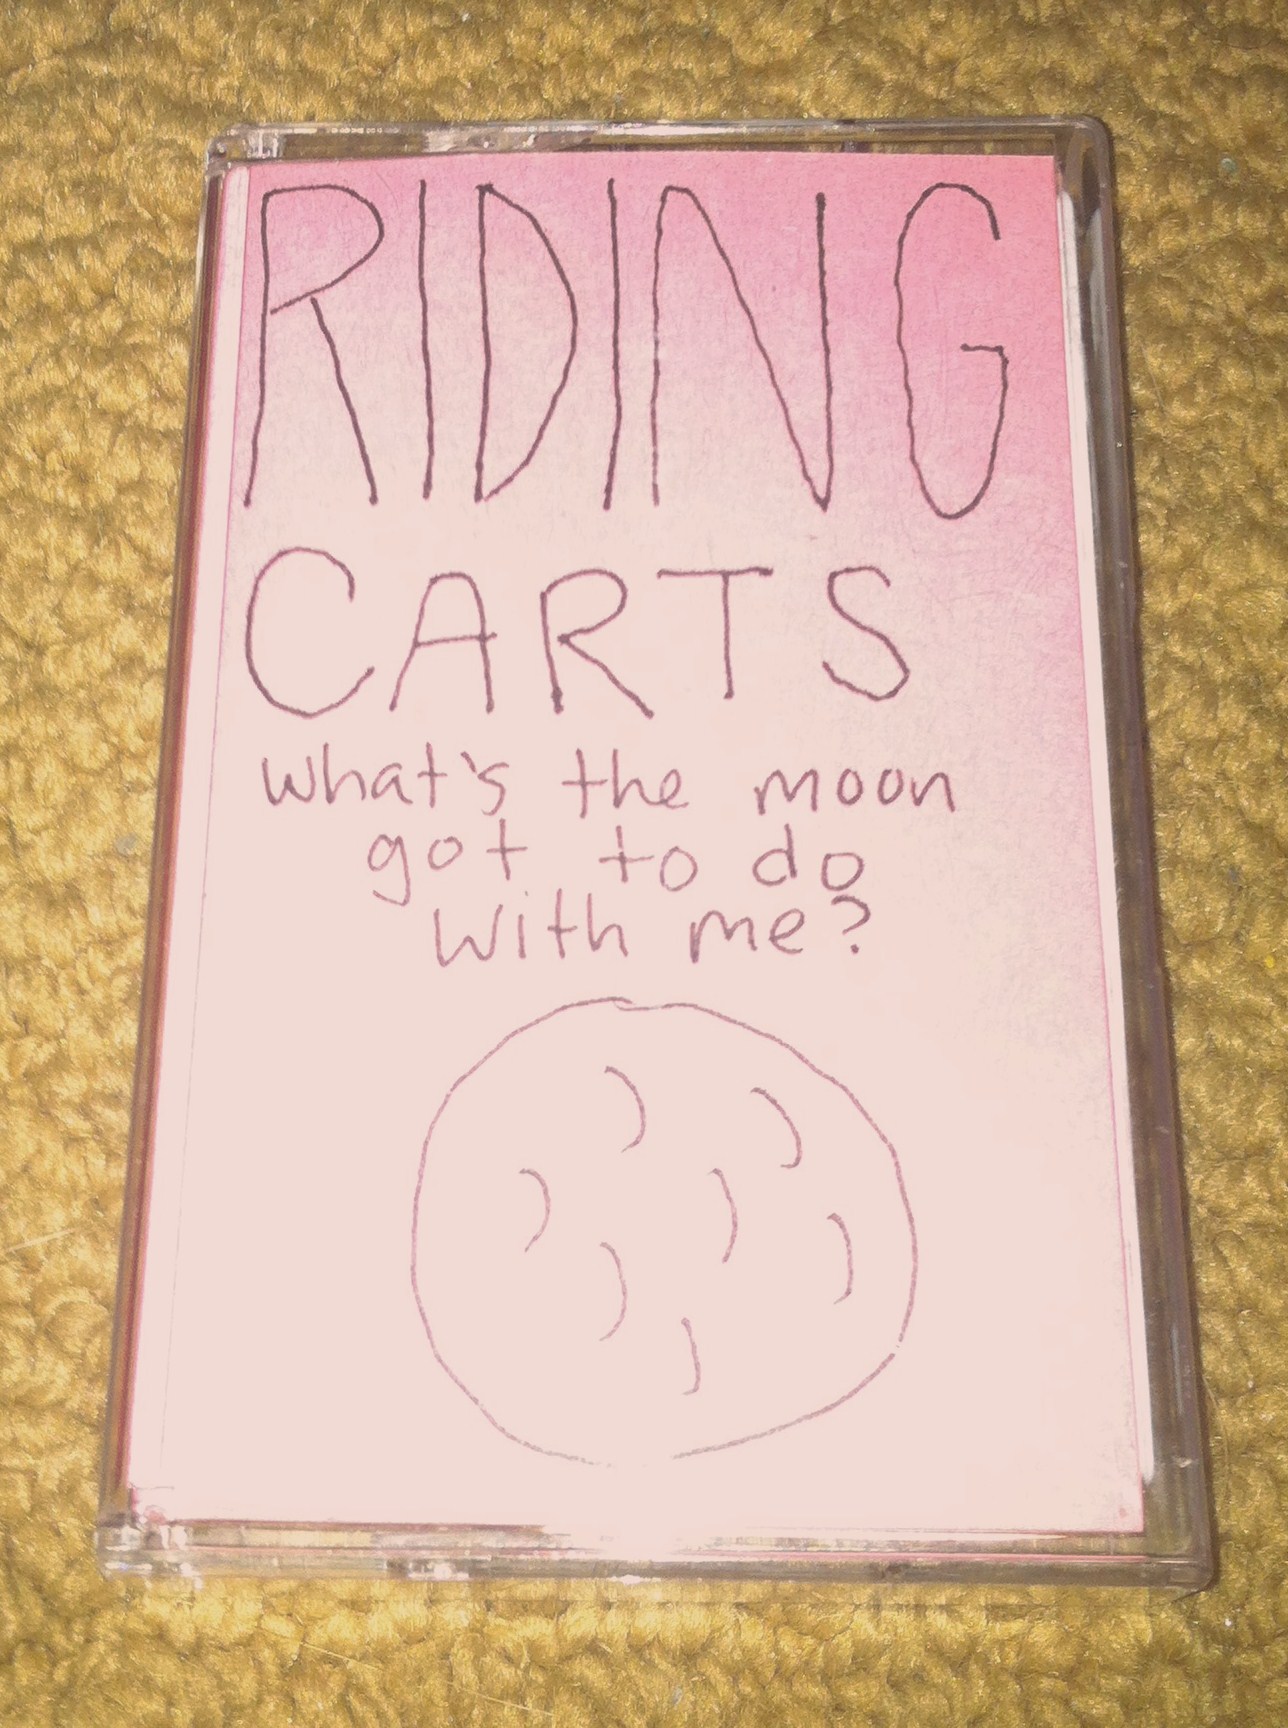 RIDING
CARTS
what's the moon
got to do
with me?